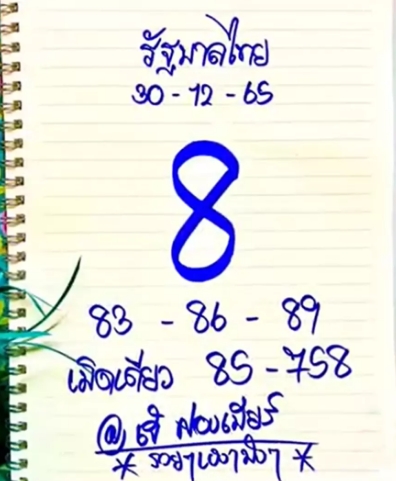 รัฐบาลไทย
30-12-65
8
83 - 86 - 89
เม็ดเดียว 85-758
@ เจ๊ ฟองเบียร์
* รวยๆเฮงๆปังๆ *